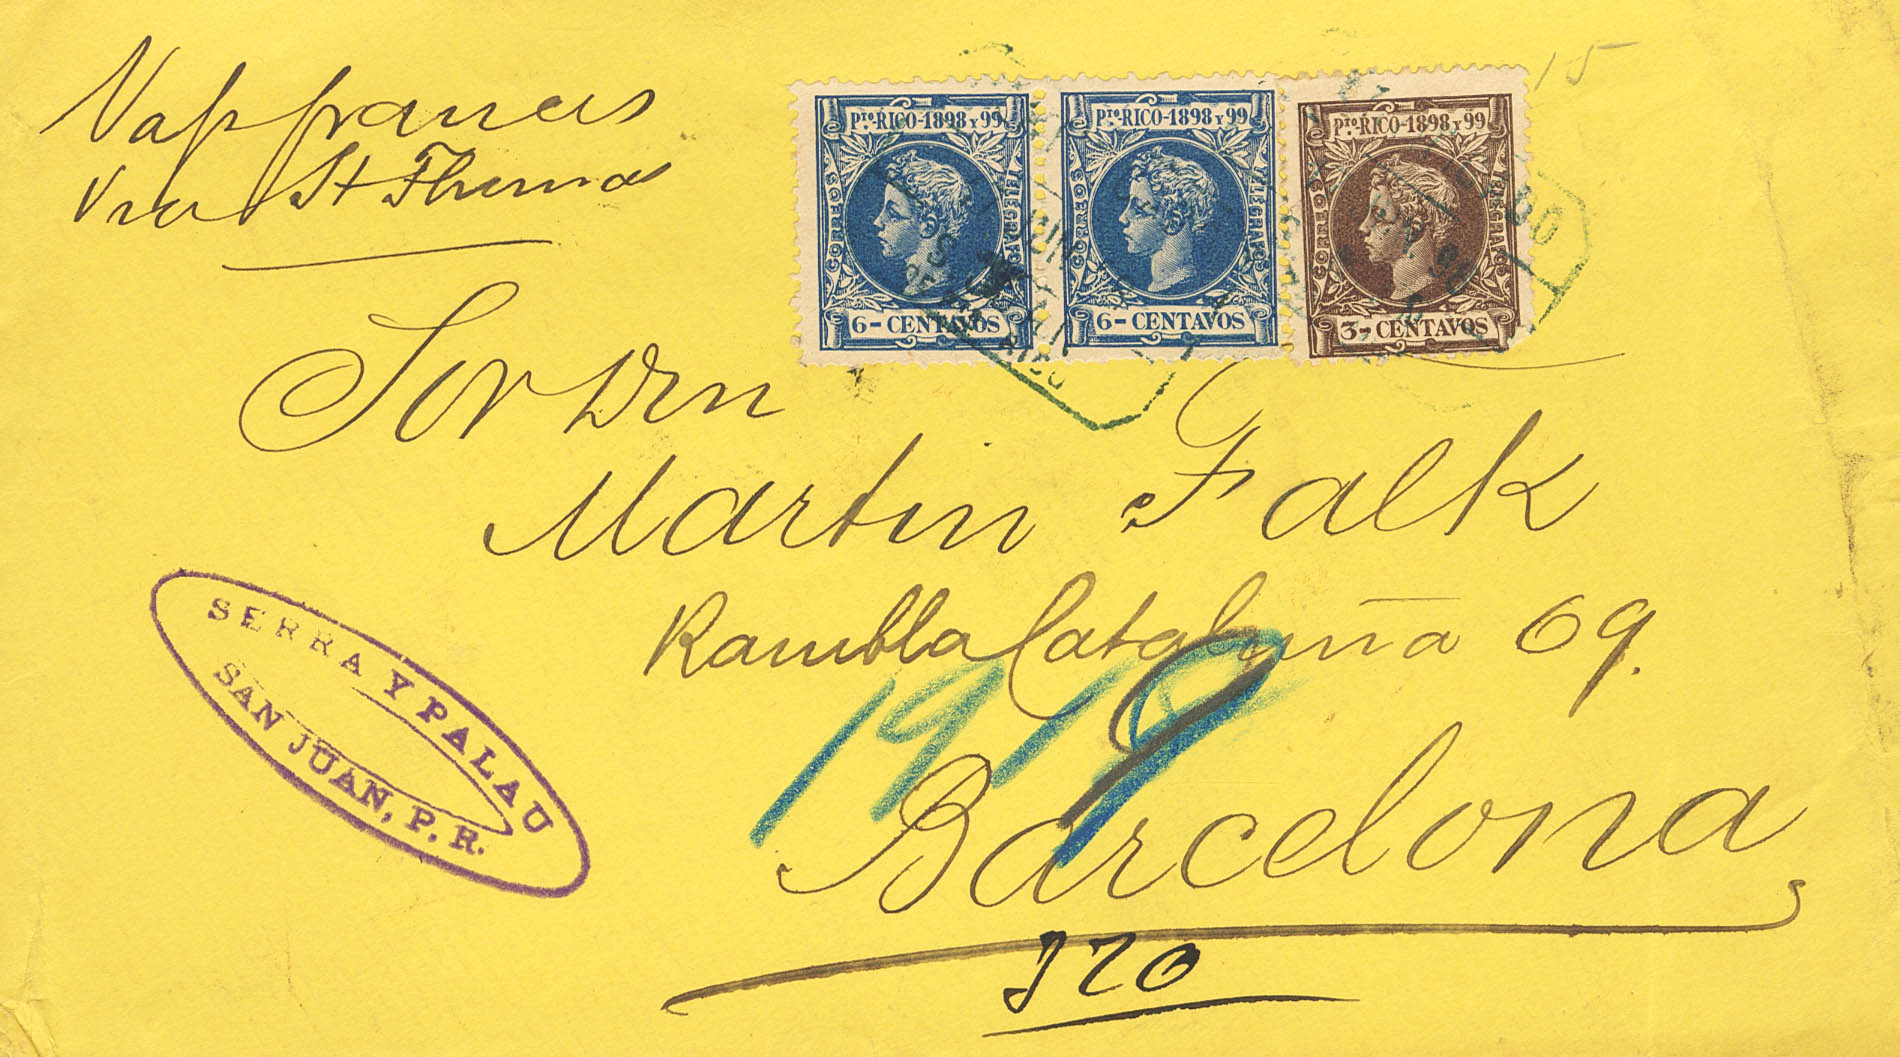 Vap frances
Via St Thomas
15
Pto.-RICO-1898 y 99
CORREOS
TELEGRAFOS
6-CENTAVOS
Pto.-RICO-1898 y 99
CORREOS
TELEGRAFOS
6-CENTAVOS
Pto.-RICO-1898 y 99
CORREOS
TELEGRAFOS
3-CENTAVOS
Sor Dn
Martin Falk
Rambla Cataluña 69.
Barcelona
SERRA Y PALAU
SAN JUAN, P. R.